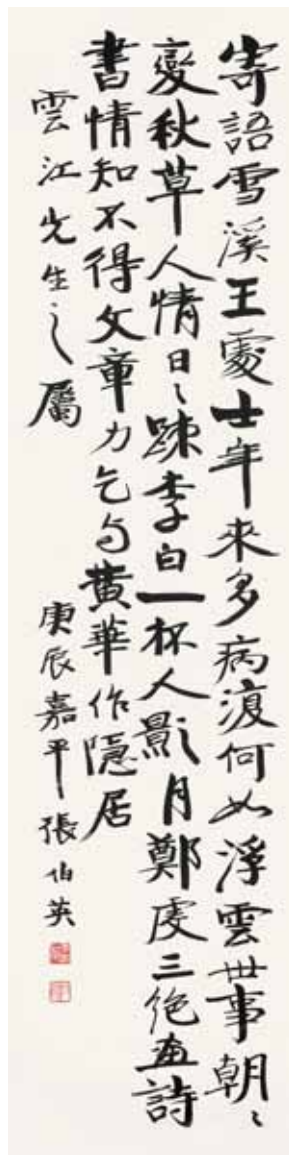 寄語雪溪王處士年來多病復何如浮雲世事朝〻
變秋草人情日〻踈李白一杯人影月鄭虔三絕畫詩
書情知不得文章力乞与黃華作隱居
雲江先生之屬
庚辰嘉平張伯英